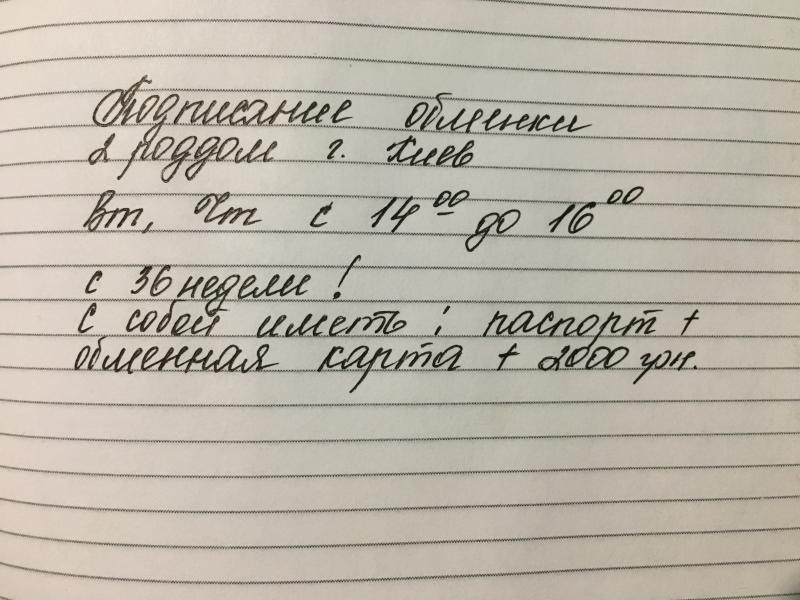 Подписание обменки
2 роддом г. Киев
Вт, Чт с 14 00 до 16 00
с 36 недели!
с собой иметь: паспорт +
обменная карта + 2000 грн.